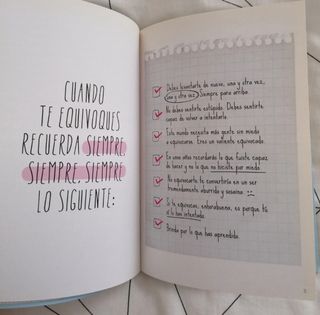 CUANDO
TE EQUIVOQUES
RECUERDA SIEMPRE,
SIEMPRE, SIEMPRE
LO SIGUIENTE:
Debes levantarte de nuevo, una y otra vez,
una y otra vez. Siempre para arriba.
No debes sentirte estúpido. Debes sentirte
capaz de volver a intentarlo.
Este mundo necesita más gente sin miedo
a equivocarse. Eres un valiente equivocado.
En unos años recordarás lo que fuiste capaz
de hacer y no lo que no hiciste por miedo.
No equivocarte te convertiría en un ser
tremendamente aburrido y sosaina.
Si te equivocas, enhorabuena, es porque tú
sí lo has intentado.
Brinda por lo que has aprendido.